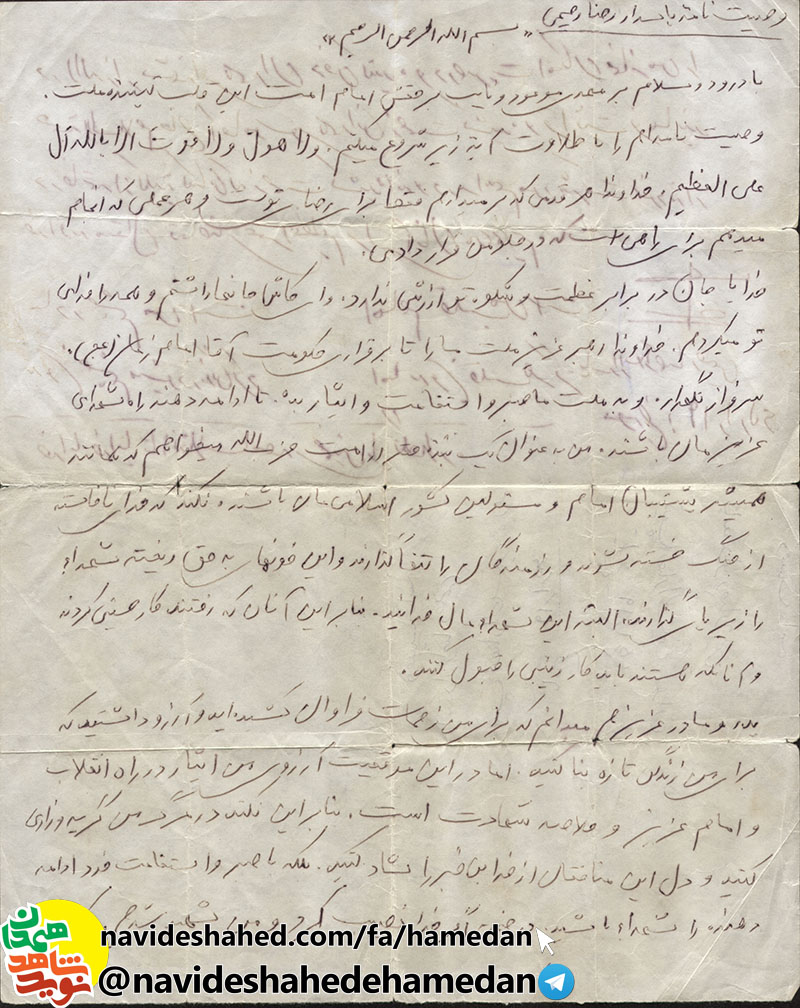 وصیت نامه پاسدار رضا رحیمی
« بسم الله الرحمن الرحیم »
با درود و سلام بر مهدی موعود و نایب برحقش امام امت این قلب تپنده ملت.
وصیت نامه‌ام را با طلاوت آیه زیر شروع میکنم. ولا هول ولا قوت الا بالله آل
علی العظیم. خداوندا هر قدمی که بر میدارم فقط برای رضای توست و هر عملی که انجام
میدهم برای راهی است که در جلو من قرار دادی.
خدایا جان در برابر عظمت و شکوه تو ارزشی ندارد. وای کاش جانها داشتم و همه را فدای
تو میکردم. خداوندا رهبر عزیز ملت ما را تا برقراری حکومت آقا امام زمان (عج).
سرفراز نگهدار. و به ملت ما صبر و استقامت و ایثار بده. تا ادامه دهنده راه شهدای
عزیزمان باشند. من به عنوان یک بنده حقیر از امت حزب الله میخواهم که همانند
همیشه پشتیبان امام و مسئولین کشور اسلامی‌مان باشند. نکند که خدای ناخاسته
از جنگ خسته شوند و رزمندگان را تنها گذارند و این خونهای به حق ریخته شهداء
را زیر پا گذارند. البته این شهداء مال خدایند. بنابراین آنان که رفتند کار حسینی کردند
و آنانکه هستند باید کار زینبی را قبول کنند.
پدر و مادر عزیزم میدانم که برای من زحمات فراوان کشیده‌اید و آرزو داشتید که
برای من زندگی تازه بنا کنید. اما در این موقعیت آرزوی من ایثار در راه انقلاب
و امام عزیز و خلاصه شهادت است. بنابراین نکند در مرگ من گریه و زاری
کنید و دل این منافقان از خدا بی‌خبر را شاد کنید. بلکه با صبر و استقامت خود ادامه
دهنده راه شهداء باشید.
navideshahed.com/fa/hamedan
@navideshahedehamedan
نوید شاهد همدان